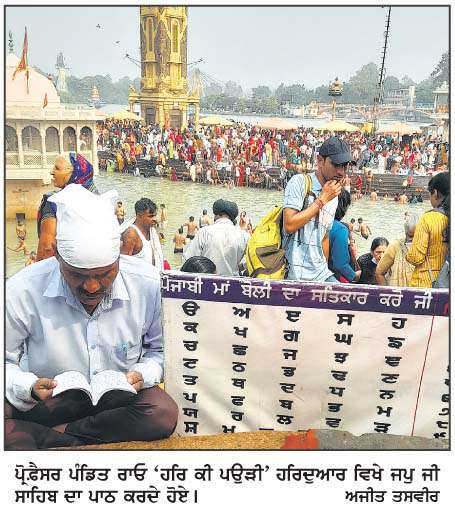 ਪੰਜਾਬੀ ਮਾਂ ਬੋਲੀ ਦਾ ਸਤਿਕਾਰ ਕਰੋ ਜੀ
ੳ ਅ ੲ ਸ ਹ
ਕ ਖ ਗ ਘ ਙ
ਚ ਛ ਜ ਝ ਞ
ਟ ਠ ਡ ਢ ਣ
ਤ ਥ ਦ ਧ ਨ
ਪ ਫ ਬ ਭ ਮ
ਯ ਰ ਲ ਵ ੜ
ਪ੍ਰੋਫੈਸਰ ਪੰਡਿਤ ਰਾਓ ‘ਹਰਿ ਕੀ ਪਉੜੀ’ ਹਰਿਦੁਆਰ ਵਿਖੇ ਜਪੁ ਜੀ
ਸਾਹਿਬ ਦਾ ਪਾਠ ਕਰਦੇ ਹੋਏ।
ਅਜੀਤ ਤਸਵੀਰ